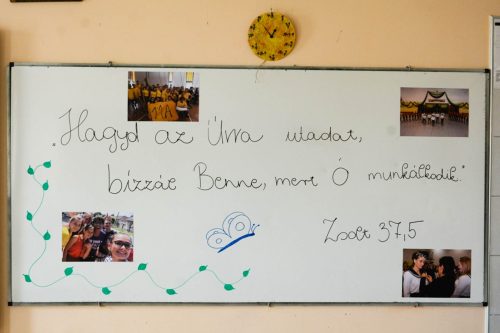 „Hagyd az Úrra utadat,
bízzál Benne, mert Ő munkálkodik."
Zsolt 37,5